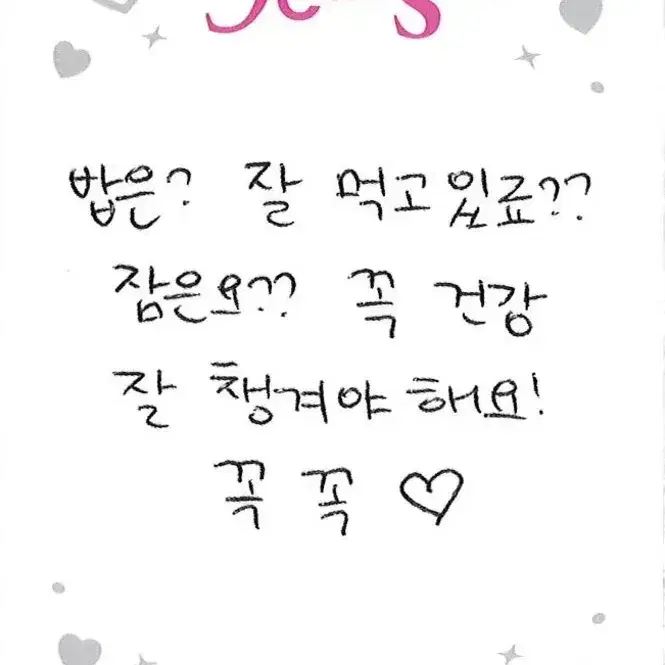 밥은? 잘 먹고있죠??
잠은요?? 꼭 건강
잘 챙겨야해요!
꼭 꼭 ♡